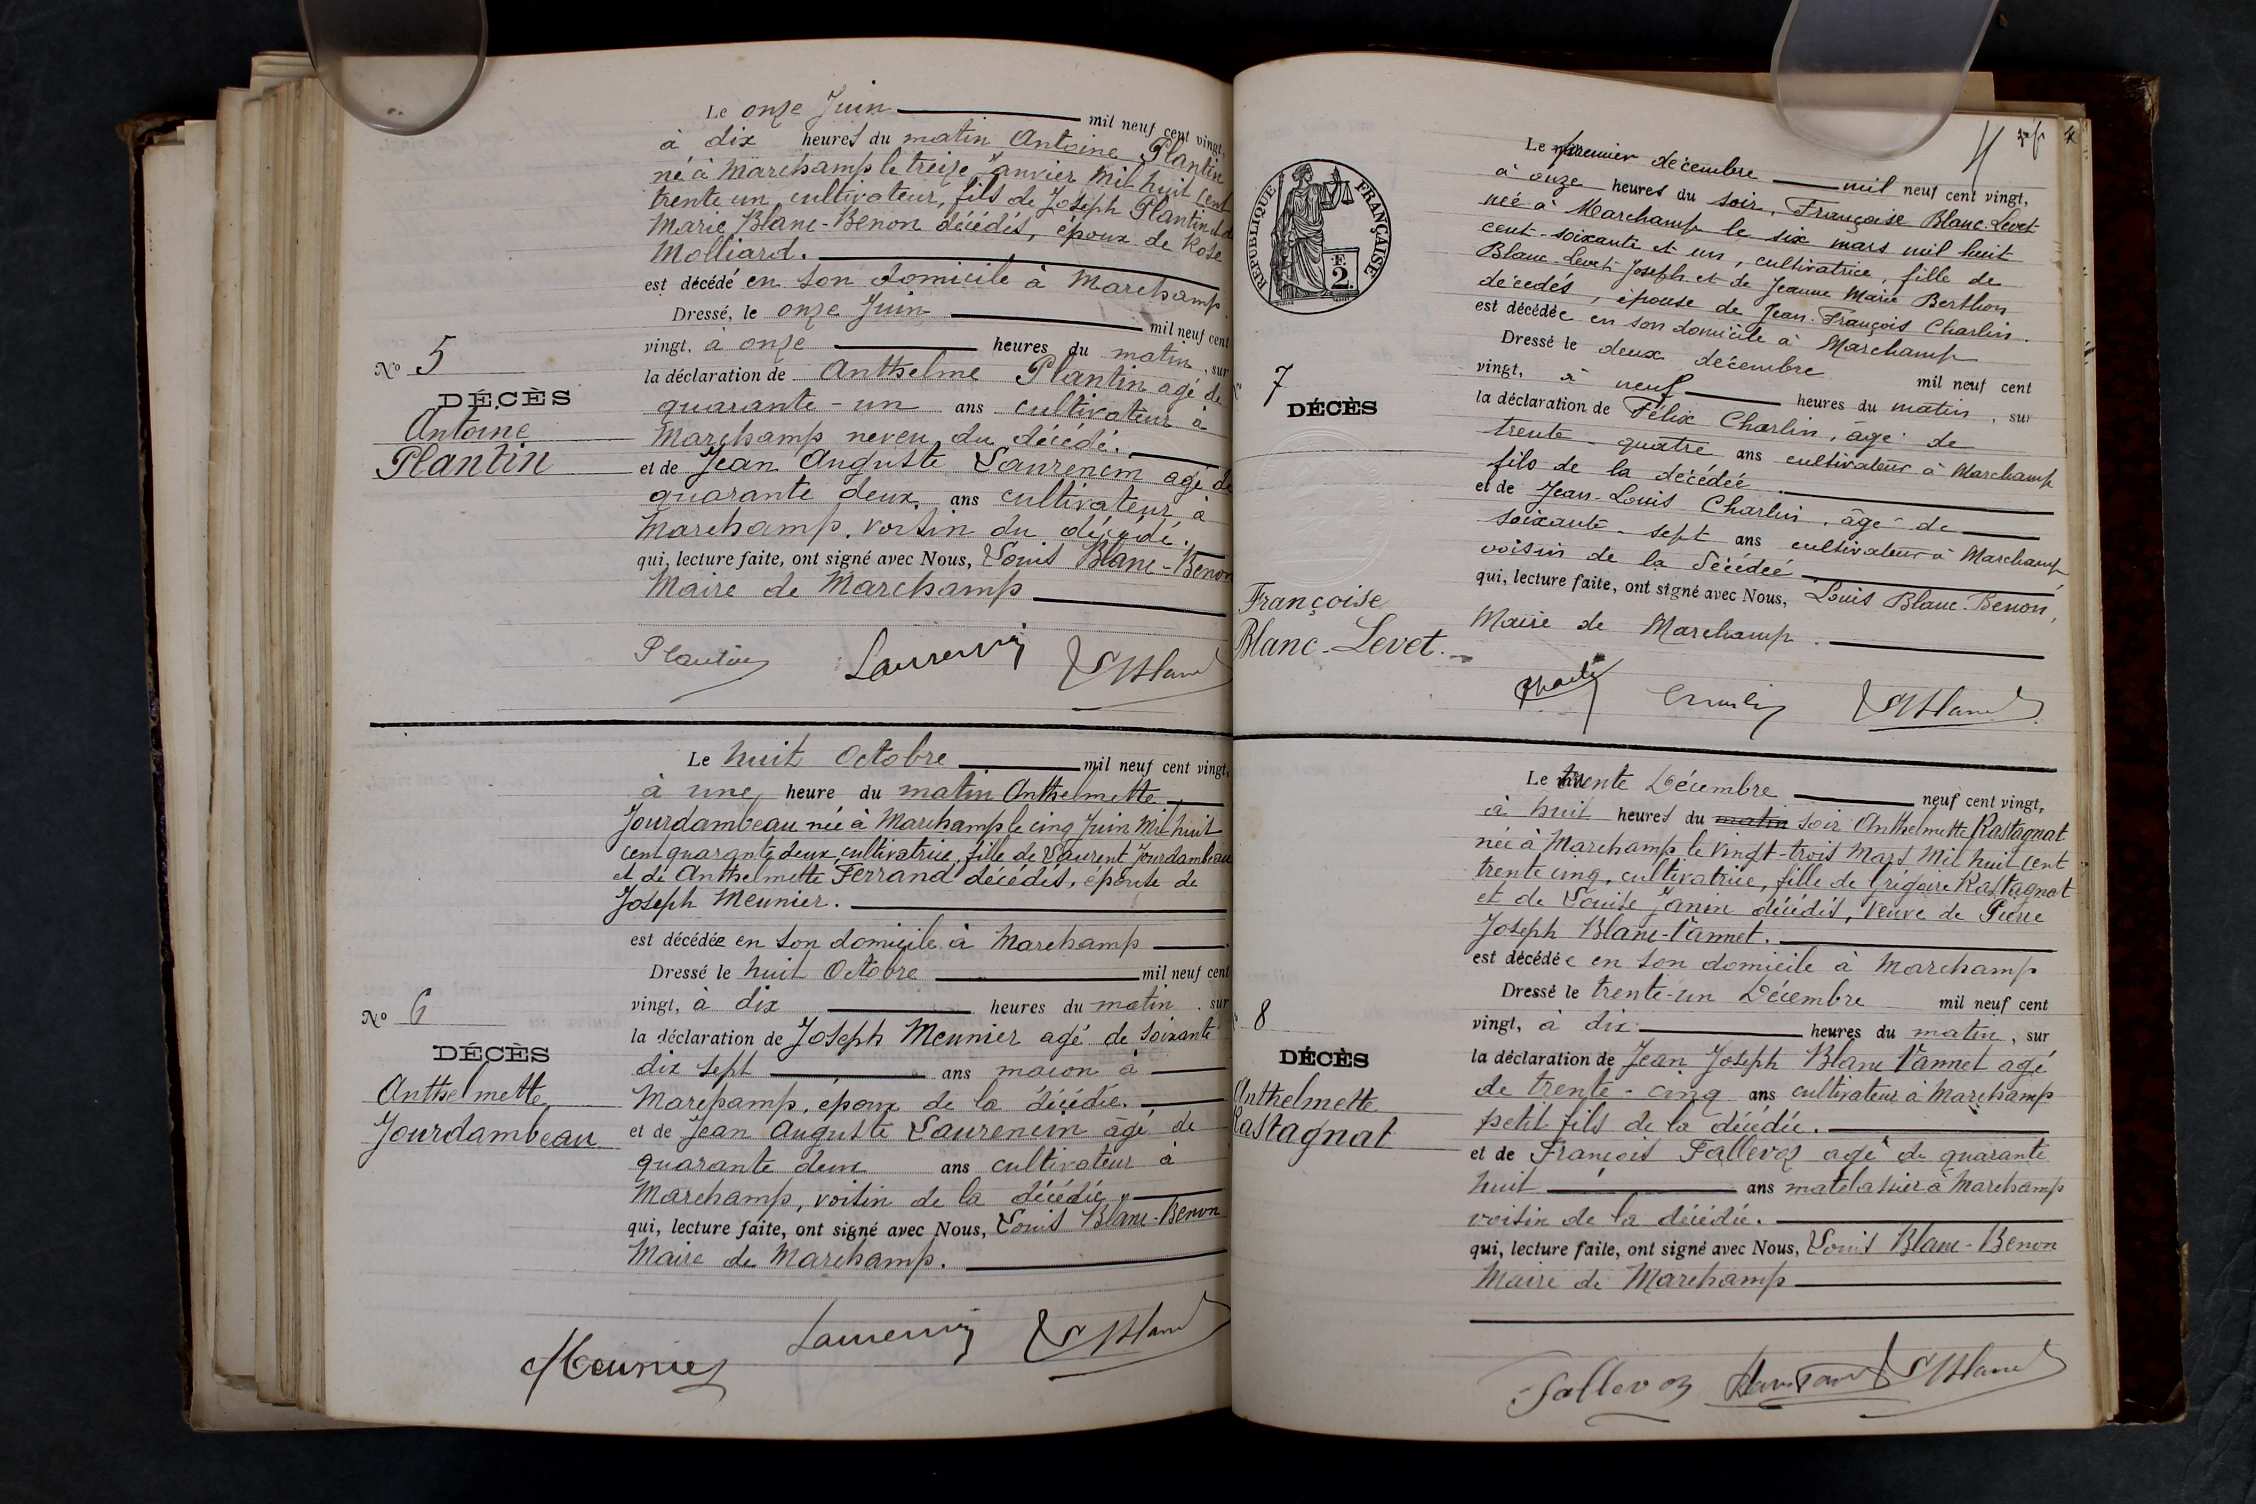 Le onze Juin mil neuf cent vingt,
à dix heures du matin Antoine Plantin
né à Marchamp le treize Janvier Mil huit Cent
trente un, cultivateur, fils de Joseph Plantin et de
Marie Blanc-Benon décédés, époux de Rose
Molliard.
est décédé en son domicile à Marchamp.
Dressé, le onze Juin mil neuf cent
vingt, à onze heures du matin, sur
la déclaration de Anthelme Plantin agé de
quarante-un ans cultivateur à
Marchamp neveu du décédé.
et de Jean Auguste Laurencin agé de
quarante deux ans cultivateur à
Marchamp, voisin du décédé.
qui, lecture faite, ont signé avec Nous, Louis Blanc-Benon
Maire de Marchamp
Plantin Laurencin L Blanc
No 5
DÉCÈS
Antoine
Plantin
Le huit Octobre mil neuf cent vingt,
à une heure du matin Anthelmette
Jourdambeau née à Marchamp le cinq Juin Mil huit
cent quarante deux, cultivatrice, fille de Laurent Jourdambeau
et de Anthelmette Ferrand décédés, épouse de
Joseph Meunier.
est décédée en son domicile à Marchamp
Dressé le huit Octobre mil neuf cent
vingt, à dix heures du matin, sur
la déclaration de Joseph Meunier agé de soixante
dix sept ans maçon à
Marchamp, époux de la décédée.
et de Jean Auguste Laurencin âgé de
quarante deux ans cultivateur à
Marchamp, voisin de la décédée,
qui, lecture faite, ont signé avec Nous, Louis Blanc-Benon
Maire de Marchamp.
Meunier Laurencin L Blanc
No 6
DÉCÈS
Anthelmette
Jourdambeau
RÉPUBLIQUE FRANÇAISE
F.
2.
Le premier décembre mil neuf cent vingt,
à onze heures du soir, Françoise Blanc-Levet
née à Marchamp le six mars mil huit
cent-soixante et un, cultivatrice, fille de
Blanc-Levet Joseph et de Jeanne Marie Berthon
décédés, épouse de Jean-François Charlin.
est décédée en son domicile à Marchamp
Dressé le deux décembre mil neuf cent
vingt, à neuf heures du matin, sur
la déclaration de Félix Charlin, âgé de
trente-quatre ans cultivateur à Marchamp
fils de la décédée
et de Jean-Louis Charlin, âgé de
soixante-sept ans cultivateur à Marchamp
voisin de la décédée
qui, lecture faite, ont signé avec Nous, Louis Blanc-Benon,
Maire de Marchamp.
Charlin Charlin L Blanc
7
DÉCÈS
Françoise
Blanc-Levet.
Le trente Décembre neuf cent vingt,
à huit heures du matin soir Anthelmette Rastagnat
née à Marchamp le vingt-trois Mars Mil huit cent
trente cinq, cultivatrice, fille de Grégoire Rastagnat
et de Louise Janin décédés, veuve de Pierre
Joseph Blanc-Vannet.
est décédée en son domicile à Marchamp
Dressé le trente-un Décembre mil neuf cent
vingt, à dix heures du matin, sur
la déclaration de Jean Joseph Blanc Vannet agé
de trente-cinq ans cultivateur à Marchamp
petit fils de la décédée.
et de François Fallevoz agé de quarante
huit ans matelassier à Marchamp
voisin de la décédée.
qui, lecture faite, ont signé avec Nous, Louis Blanc-Benon
Maire de Marchamp
Fallevoz L Blanc
8
DÉCÈS
Anthelmette
Rastagnat